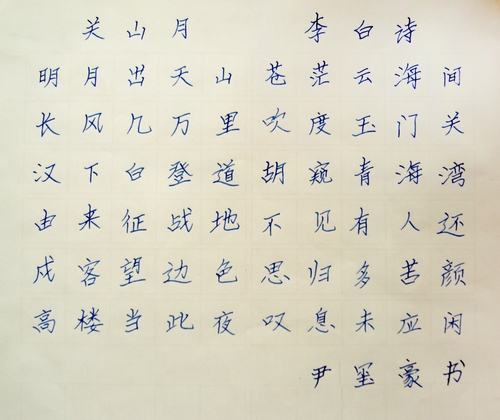 关山月 李白诗
明月出天山苍茫云海间
长风几万里吹度玉门关
汉下白登道胡窥青海湾
由来征战地不见有人还
戍客望边色思归多苦颜
高楼当此夜叹息未应闲
尹玺豪书